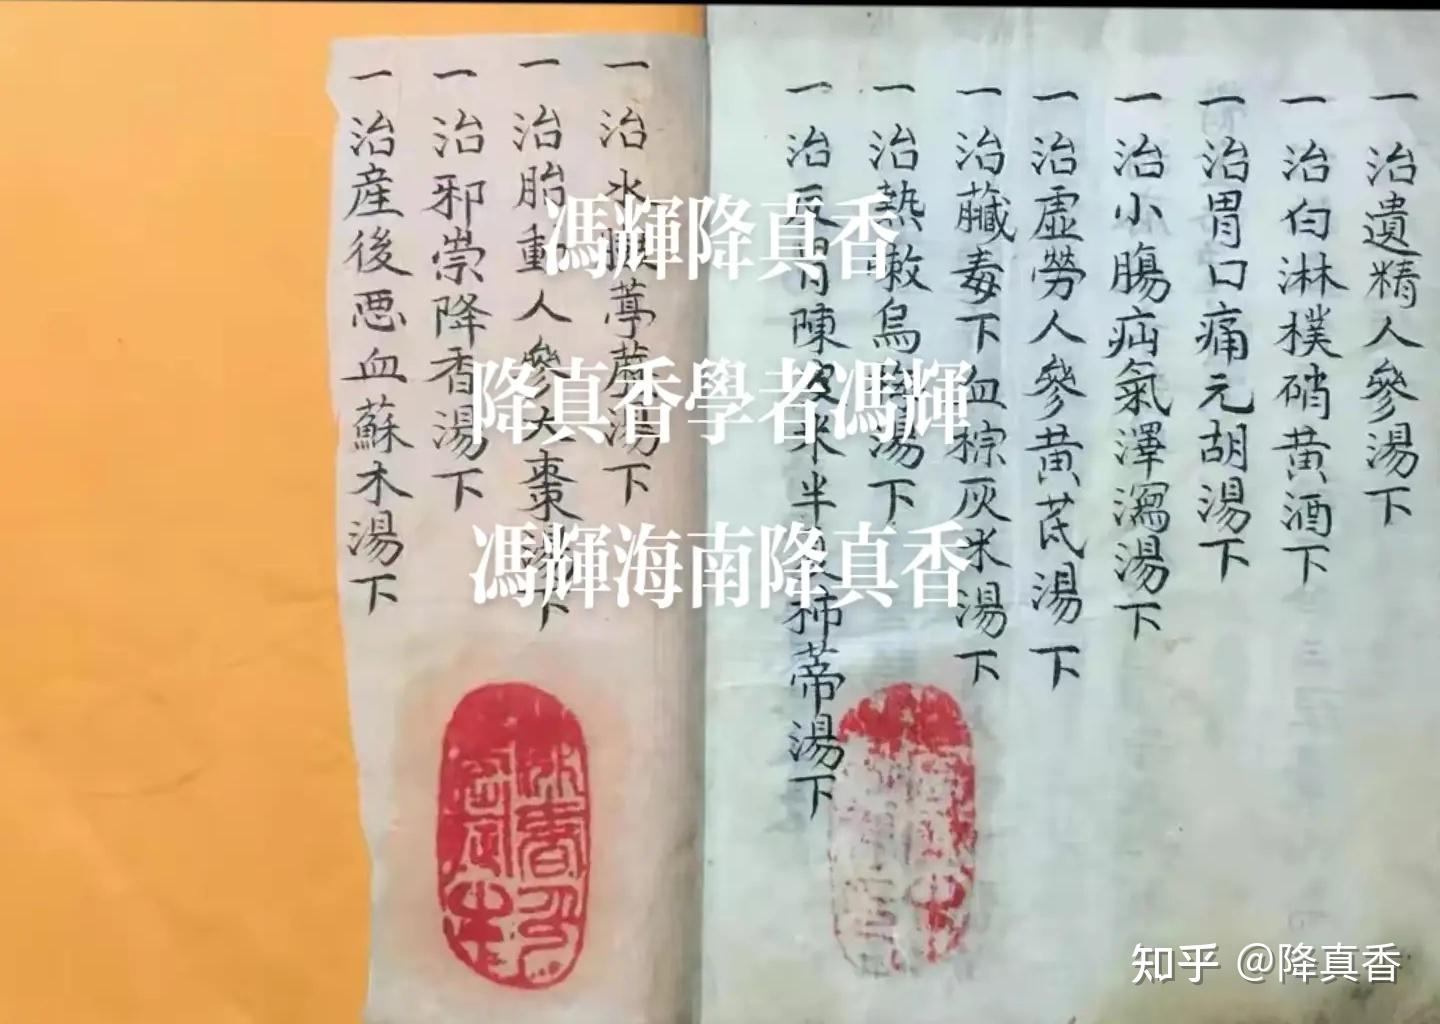 一治遺精人參湯下
一治白淋樸硝黃酒下
一治胃口痛元胡湯下
一治小腸疝氣澤瀉湯下
一治虛勞人參黃芪湯下
一治臟毒下血棕灰米湯下
一治熱嗽烏湯下
一治反胃陳米半柿蒂湯下
一治水葶藶湯下
一治胎動人參大棗湯下
一治邪祟降香湯下
一治産後悪血蘇木湯下
馮輝降真香
降真香學者馮輝
馮輝海南降真香
知乎 @降真香